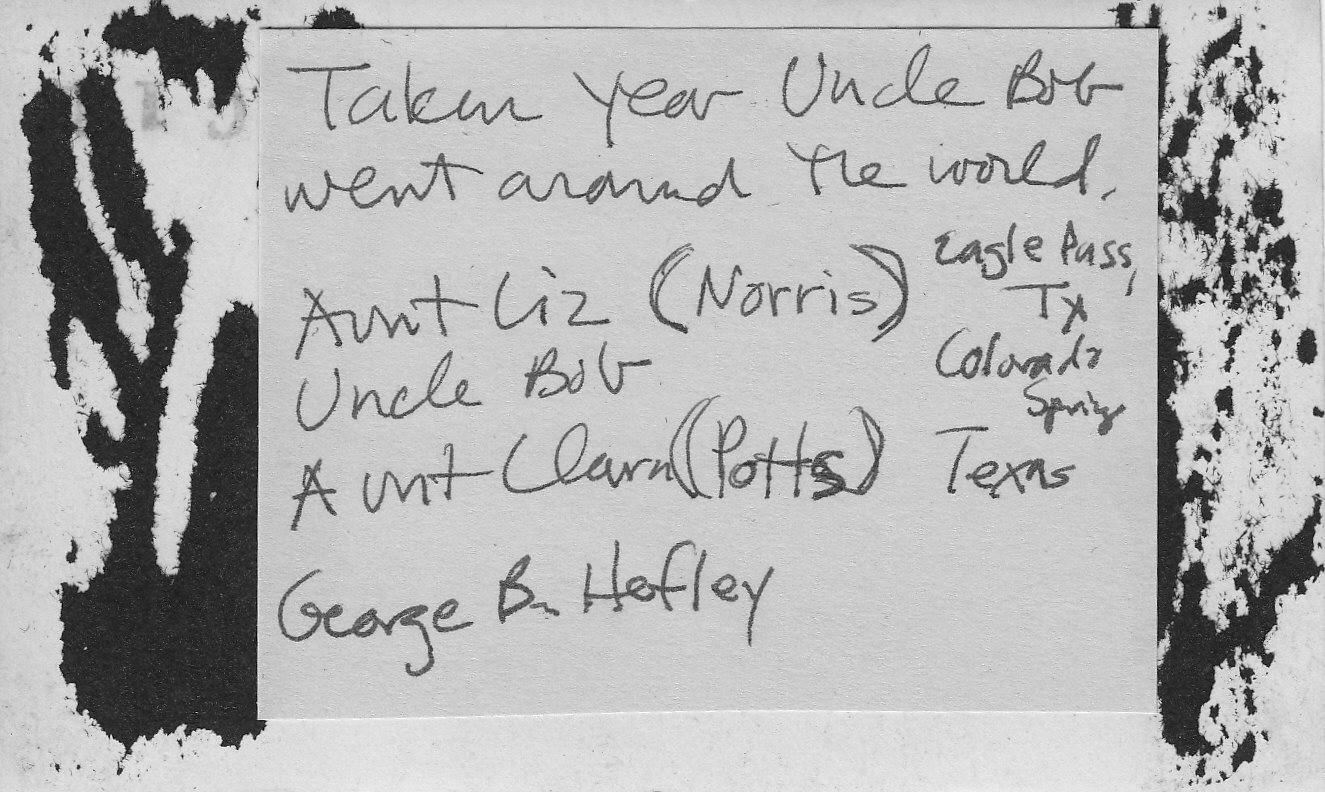 Taken year Uncle Bob
went around the world.
Aunt Liz (Norris) Eagle Pass,
Tx
Uncle Bob Colorado
Springs
Aunt Clara (Potts) Texas
George B. Hefley